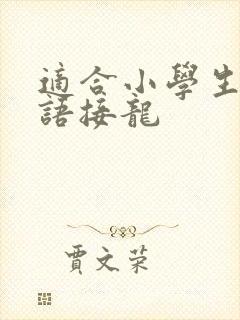 適合小學生
語接龍
賈文荣